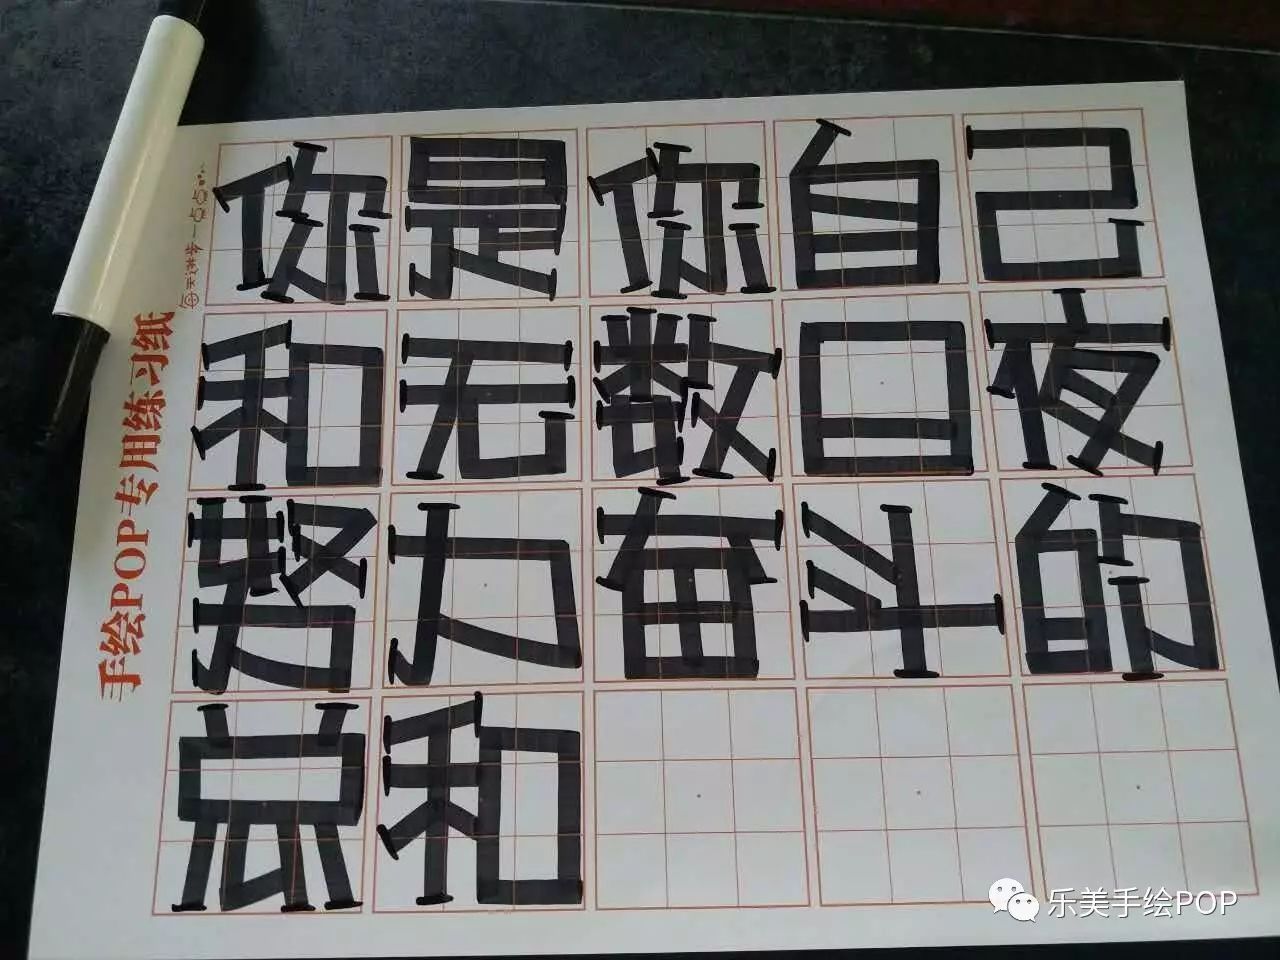 你是你自己
和无数日夜
努力奋斗的
总和
手绘POP专用练习纸
每天进步一点点
乐美手绘POP